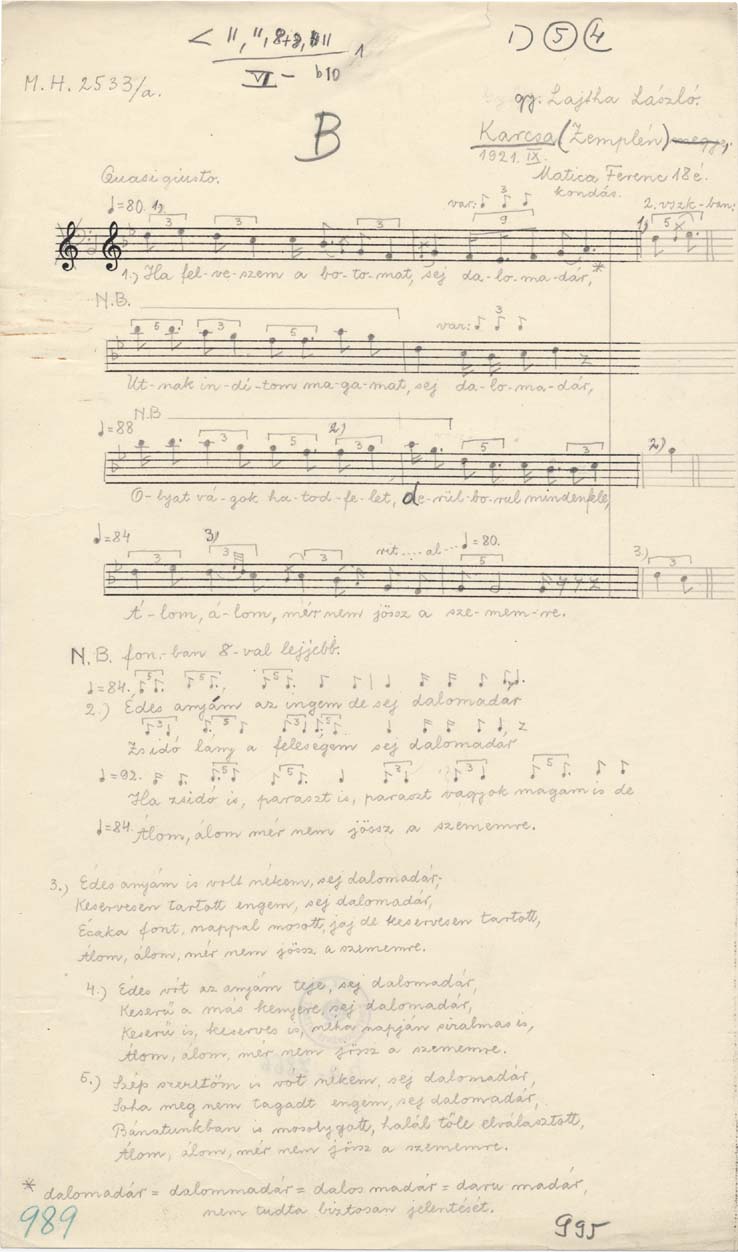 < 11, 11, 8+8, 11 1
VI – b10
1) 5 4
M.H. 2533/a.
gy: Lajtha László.
B
Karcsa (Zemplén) megye,
1921. IX.
Matica Ferenc 18 é.
kondás.
Quasi giusto.
♩=80. 1)
var:
2. vszk-ban:
1.) Ha fel-ve-szem a bo-to-mat, sej da-lo-ma-dár,*
N.B.
var:
Ut-nak in-dí-tom ma-ga-mat, sej da-lo-ma-dár,
N.B
♩=88 2) 2)
O-lyat vá-gok ha-tod-fe-let, de-rül-bo-rul mindenfele,
♩=84 3) rit....al... ♩=80. 3.)
Á-lom, á-lom, mér nem jössz a sze-mem-re.
N.B. fon.-ban 8-val lejjebb.
♩=84.
2.) Édes anyám az ingem de sej dalomadár
Zsidó lány a feleségem sej dalomadár
♩=92.
Ha zsidó is, paraszt is, paraszt vagyok magam is de
♩=84. Álom, álom mér nem jössz a szememre.
3.) Édes anyám is volt nékem, sej dalomadár,
Keservesen tartott engem, sej dalomadár,
Écaka font, nappal mosott, jaj de keservesen tartott,
Álom, álom, mér nem jössz a szememre.
4.) Édes vót az anyám teje, sej dalomadár,
Keserű a más kenyere, sej dalomadár,
Keserű is, keserves is, néha napján siralmas is,
Álom, álom, mér nem jössz a szememre.
5.) Szép szeretőm is vót nékem, sej dalomadár,
Soha meg nem tagadt engem, sej dalomadár,
Bánatunkban is mosolygott, halál tőle elválasztott,
Álom, álom, mér nem jössz a szememre.
* dalomadár = dalommadár = dalos madár = daru madár,
nem tudta biztosan jelentését.
989
995